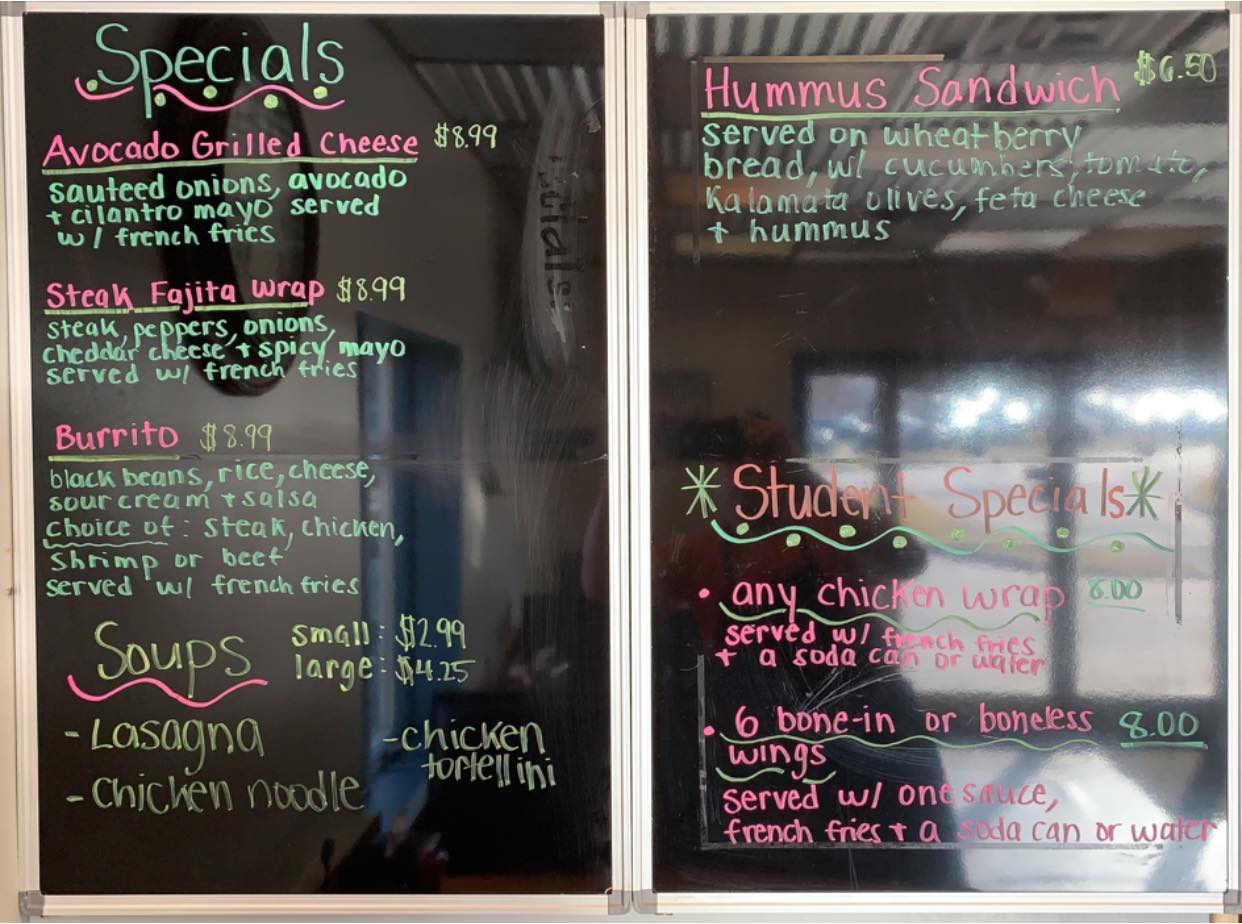 Specials
Avocado Grilled Cheese $8.99
sauteed onions, avocado
+ cilantro mayo served
w/ french fries
Steak Fajita Wrap $8.99
steak, peppers, onions,
cheddar cheese + spicy mayo
served w/ french fries
Burrito $8.99
black beans, rice, cheese,
sour cream + salsa
choice of: steak, chicken,
shrimp or beef
served w/ french fries
Soups small: $2.99
large: $4.25
- Lasagna
- Chicken noodle
- chicken
tortellini
Hummus Sandwich $6.50
served on wheatberry
bread, w/ cucumbers, tomato,
Kalamata olives, feta cheese
+ hummus
* Student Specials *
• any chicken wrap 8.00
served w/ french fries
+ a soda can or water
• 6 bone-in or boneless 8.00
wings
served w/ one sauce,
french fries + a soda can or water